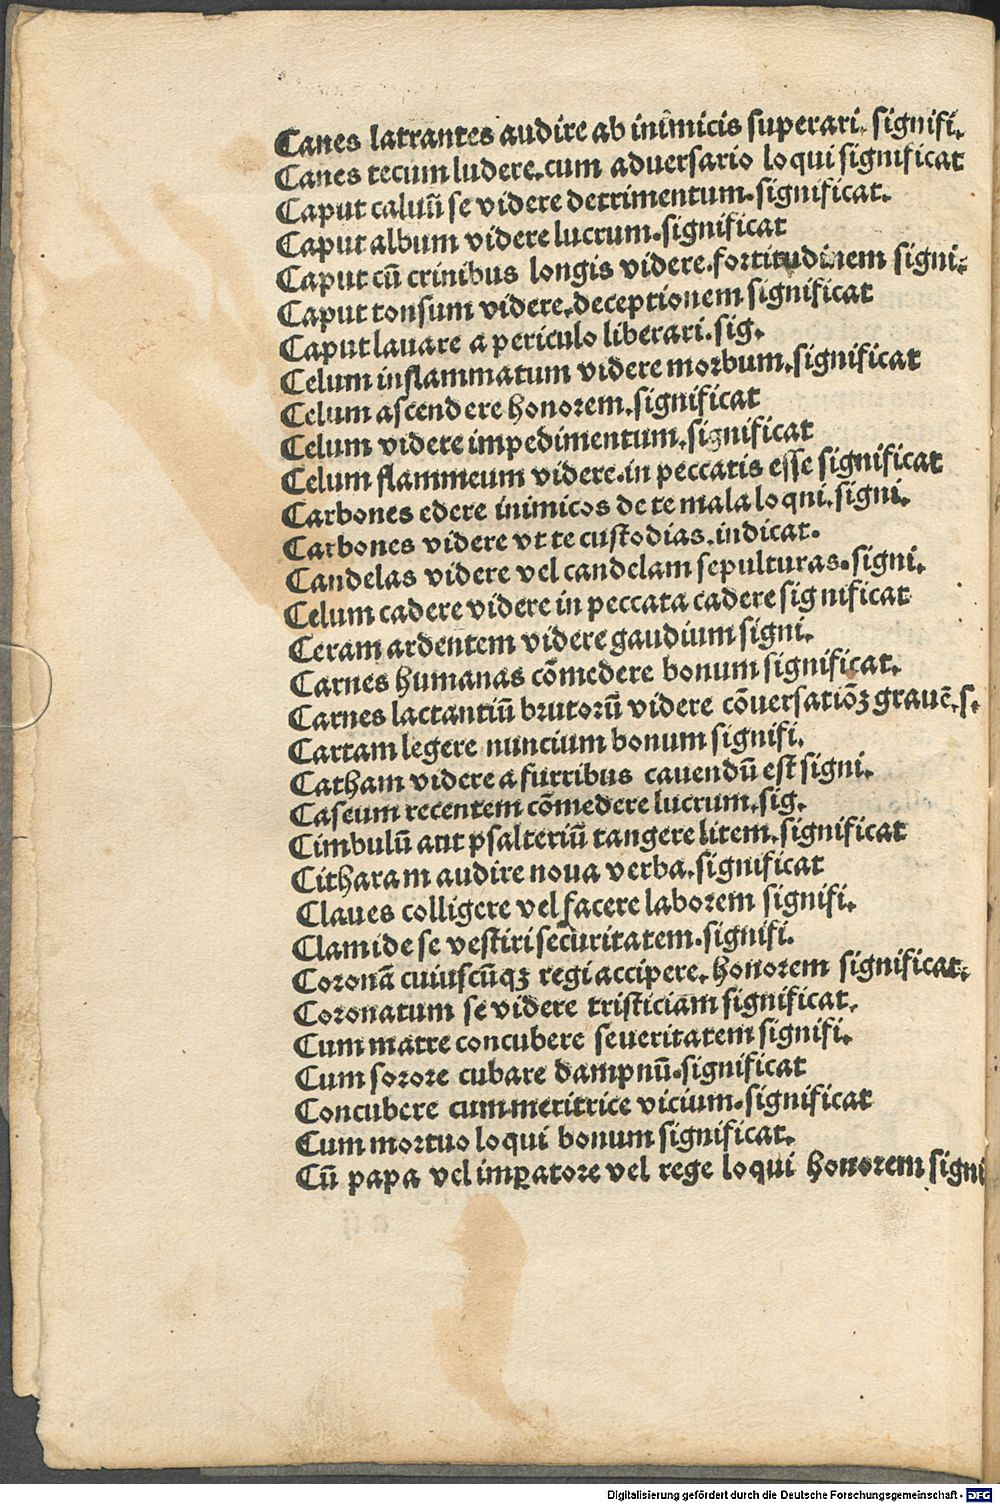 Canes latrantes audire ab inimicis superari. signifi.
Canes tecum ludere. cum aduersario loqui significat
Caput caluū se videre detrimentum. significat.
Caput album videre lucrum. significat
Caput cū crinibus longis videre. fortitudinem signi.
Caput tonsum videre. deceptionem significat
Caput lauare a periculo liberari. sig.
Celum inflammatum videre morbum. significat
Celum ascendere honorem. significat
Celum videre impedimentum. significat
Celum flammeum videre. in peccatis esse significat
Carbones edere inimicos de te mala loqni. signi.
Carbones videre vt te custodias. indicat.
Candelas videre vel candelam sepulturas. signi.
Celum cadere videre in peccata cadere significat
Ceram ardentem videre gaudium signi.
Carnes humanas cōmedere bonum significat.
Carnes lactantiū brutorū videre cōuersatiōꝫ grauē. s.
Cartam legere nuncium bonum signifi.
Catham videre a furribus cauendū est signi.
Caseum recentem cōmedere lucrum. sig.
Cimbulū aut psalteriū tangere litem. significat
Citharam audire noua verba. significat
Claues colligere vel facere laborem signifi.
Clamide se vestiri securitatem. signifi.
Coronā cuiuscūqꝫ regi accipere. honorem significat.
Coronatum se videre tristiciam significat.
Cum matre concubere seueritatem signifi.
Cum sorore cubare dampnū. significat
Concubere cum meritrice vicium. significat
Cum mortuo loqui bonum significat.
Cū papa vel imꝑatore vel rege loqui honorem signi
Digitalisierung gefördert durch die Deutsche Forschungsgemeinschaft - DFG